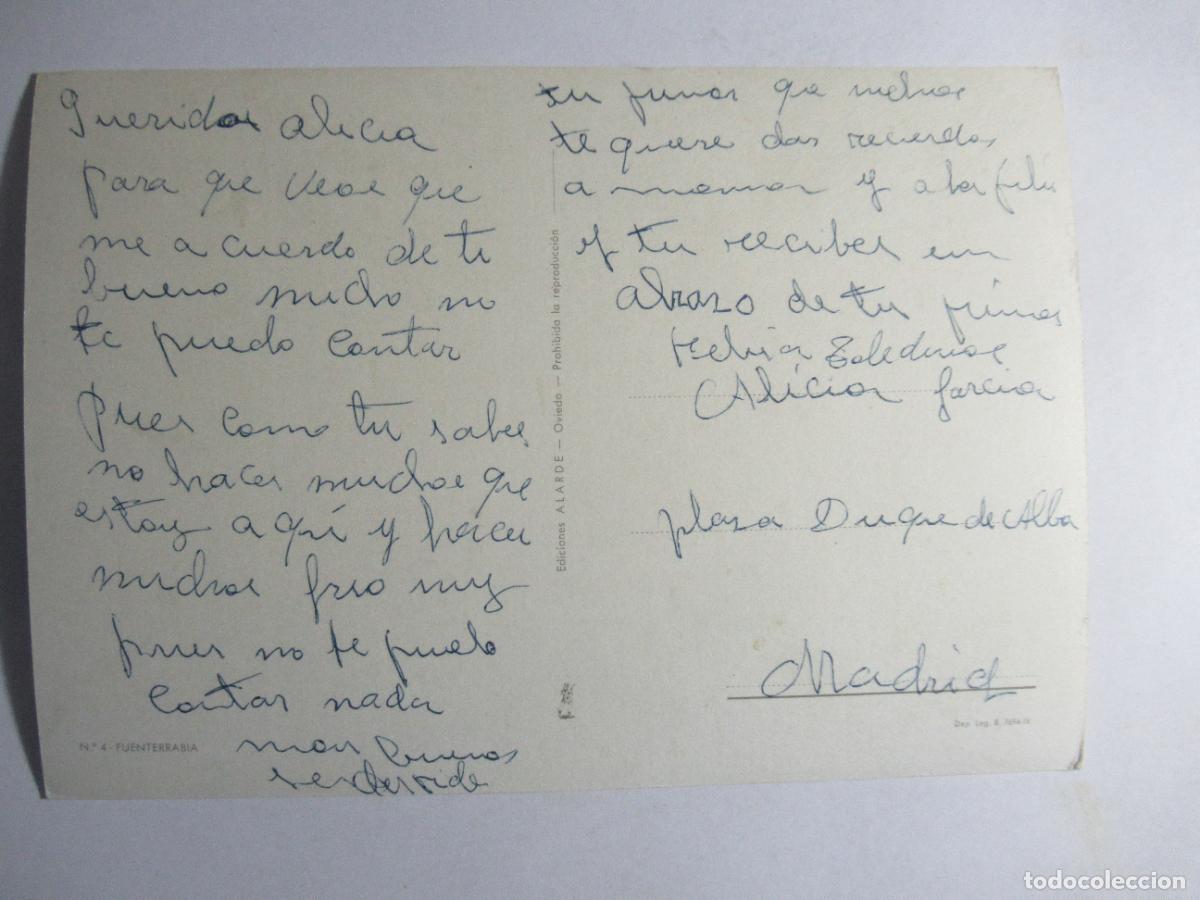 Querida alicia
para que veas que
me acuerdo de ti
bueno mucho no
te puedo contar
pues como tu sabes
no hace mucho que
estoy aqui y hace
mucho frio muy
pues no te puedo
contar nada
mas bueno
se despide
Nº 4 - FUENTERRABIA
Ediciones ALARDE — Oviedo — Prohibida la reproducción
tu prima que mucho
te quiere das recuerdos
a mama y a la
y tu recibes un
abrazo de tu prima
Alicia garcia
plaza Duque de Alba
Madrid
Dep. Leg. B.
todocoleccion